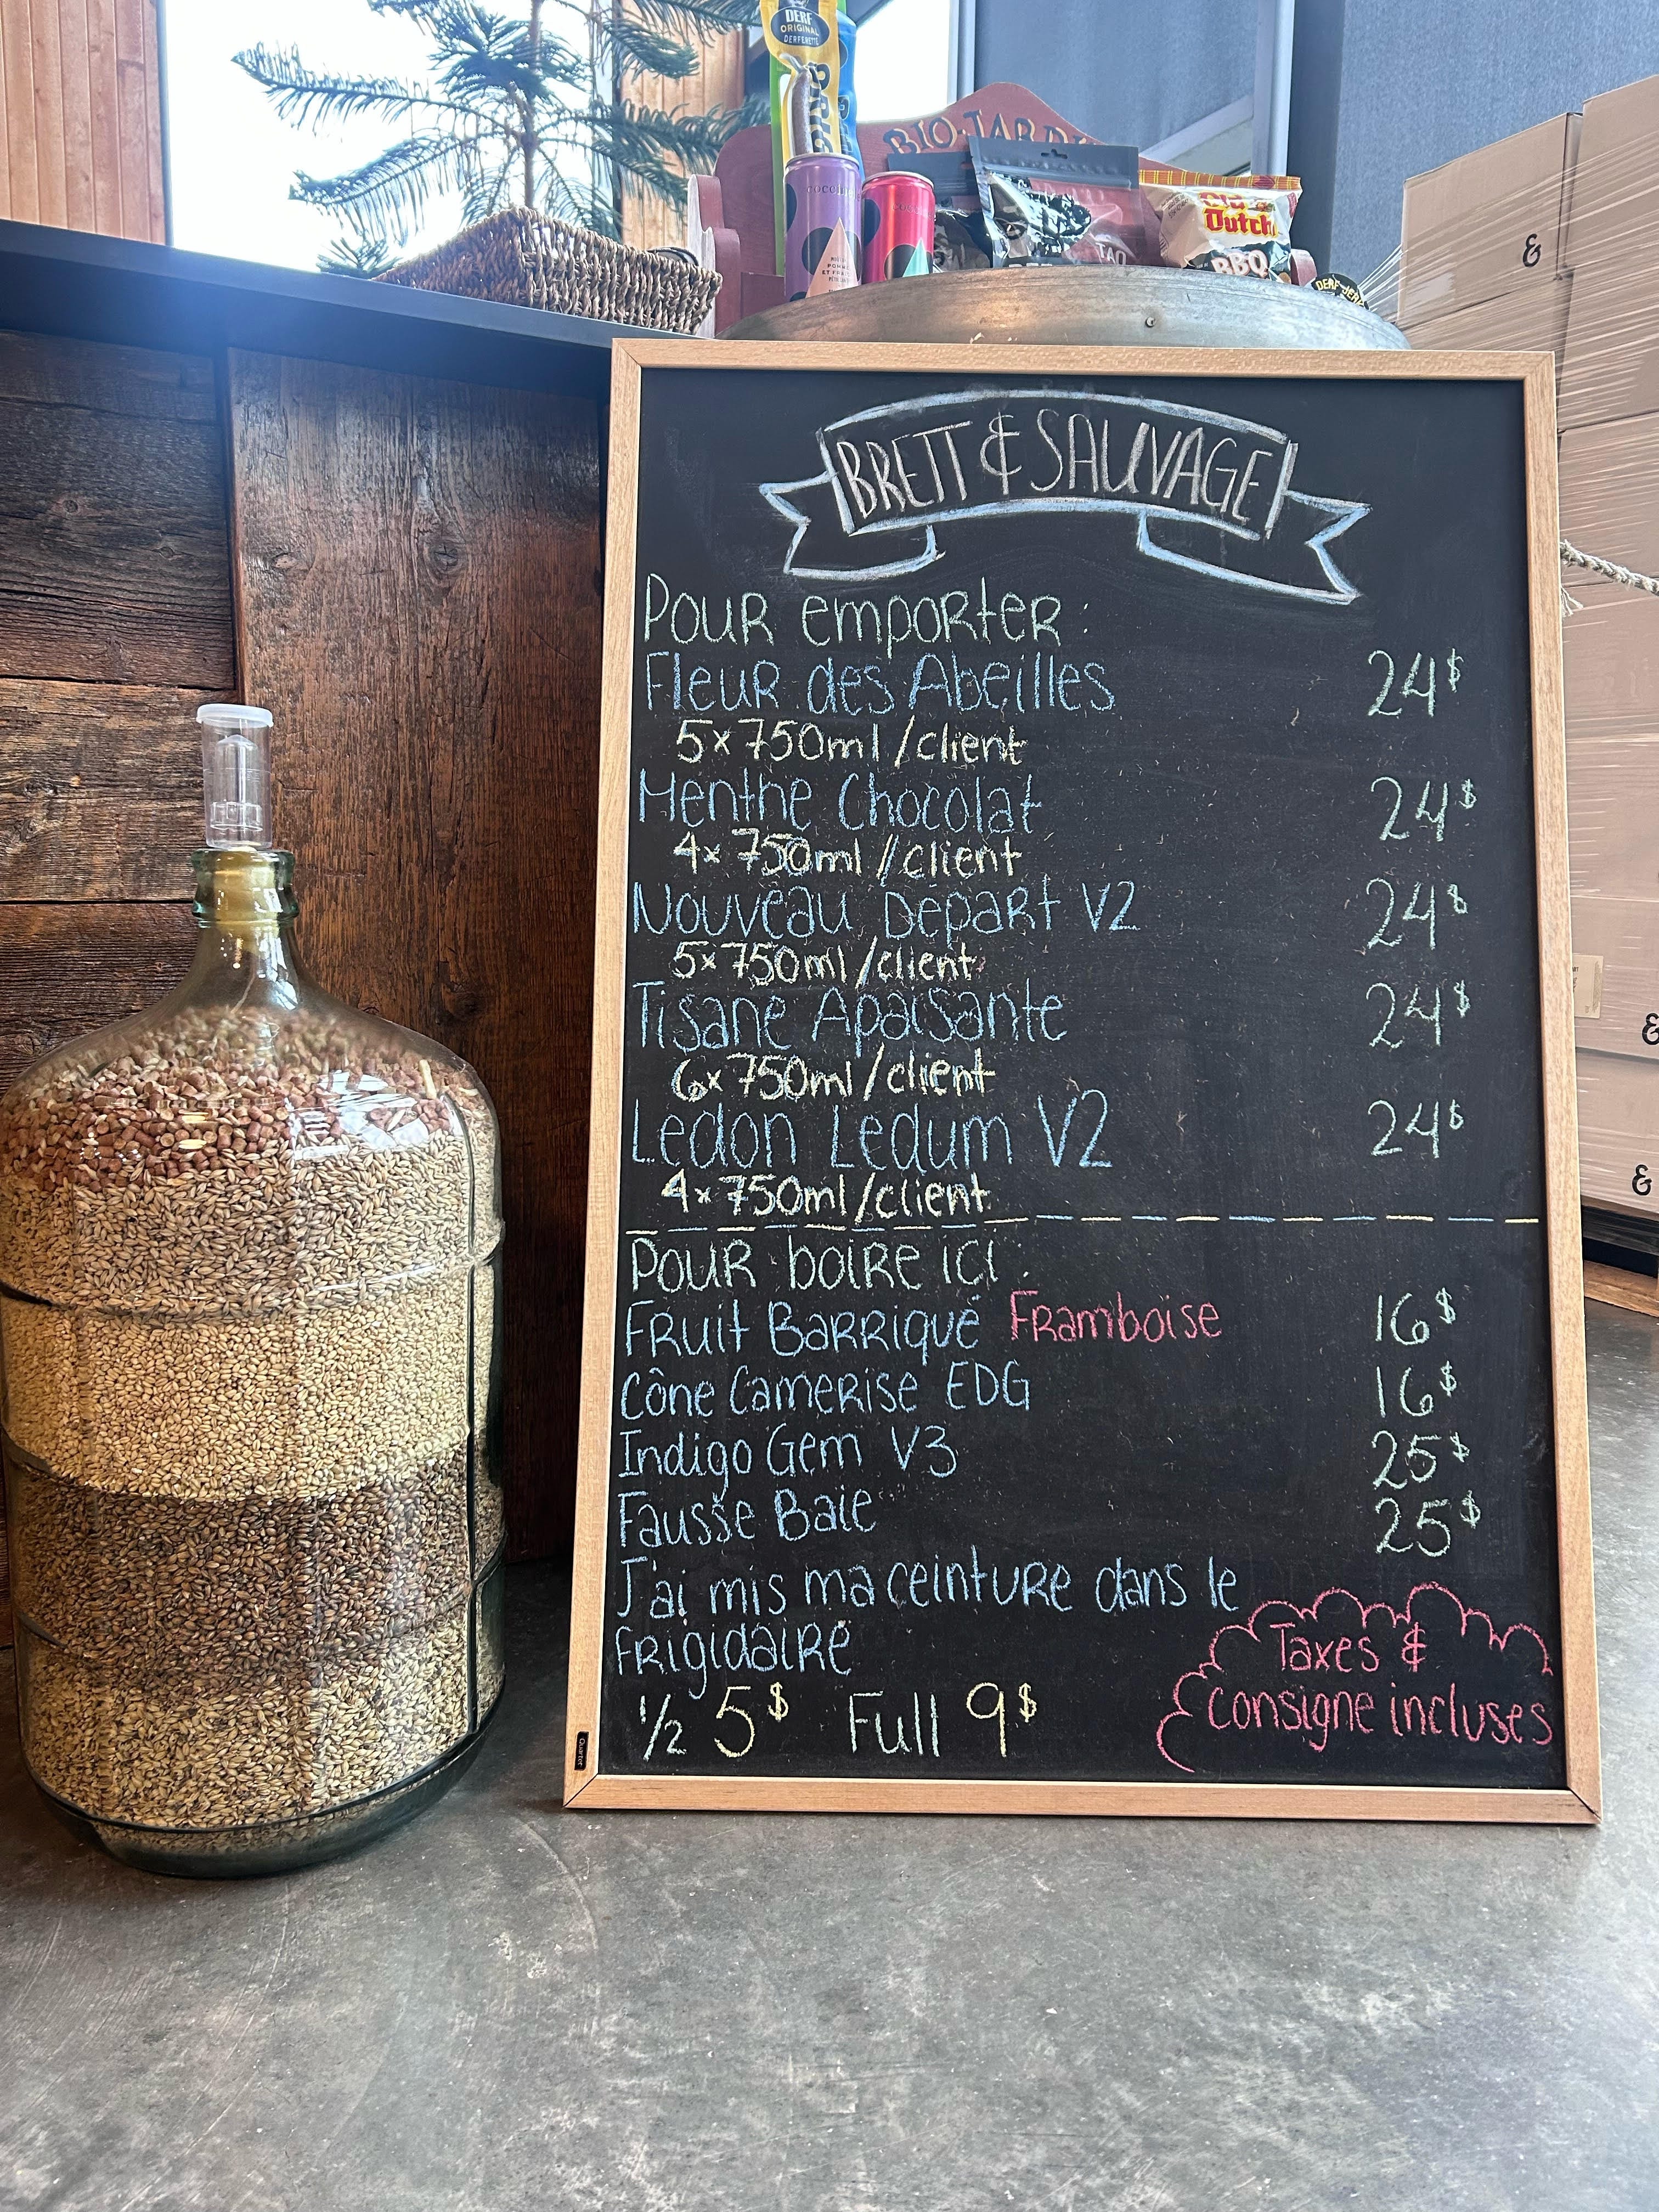 DERF
ORIGINAL
DERFENETTE
BIO-JARDI
Old
Dutch
BBQ
DERF JERK
&
BRETT & SAUVAGE
Pour emporter :
Fleur des Abeilles 24$
5x750ml/client
Menthe Chocolat 24$
4x750ml/client
Nouveau Départ V2 24$
5x750ml/client
Tisane Apaisante 24$
6x750ml/client
Ledon Ledum V2 24$
4x750ml/client
Pour boire ici :
Fruit Barrique Framboise 16$
Cône Camerise EDG 16$
Indigo Gem V3 25$
Fausse Baie 25$
J'ai mis ma ceinture dans le
frigidaire
1/2 5$ Full 9$
Taxes &
consigne incluses
Quartet
&
&